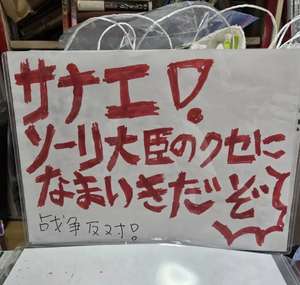 サナエ!
ソーリ大臣のクセに
なまいきだぞ
战争反对!